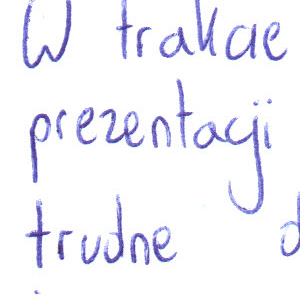 W trakcie
prezentacji
trudne